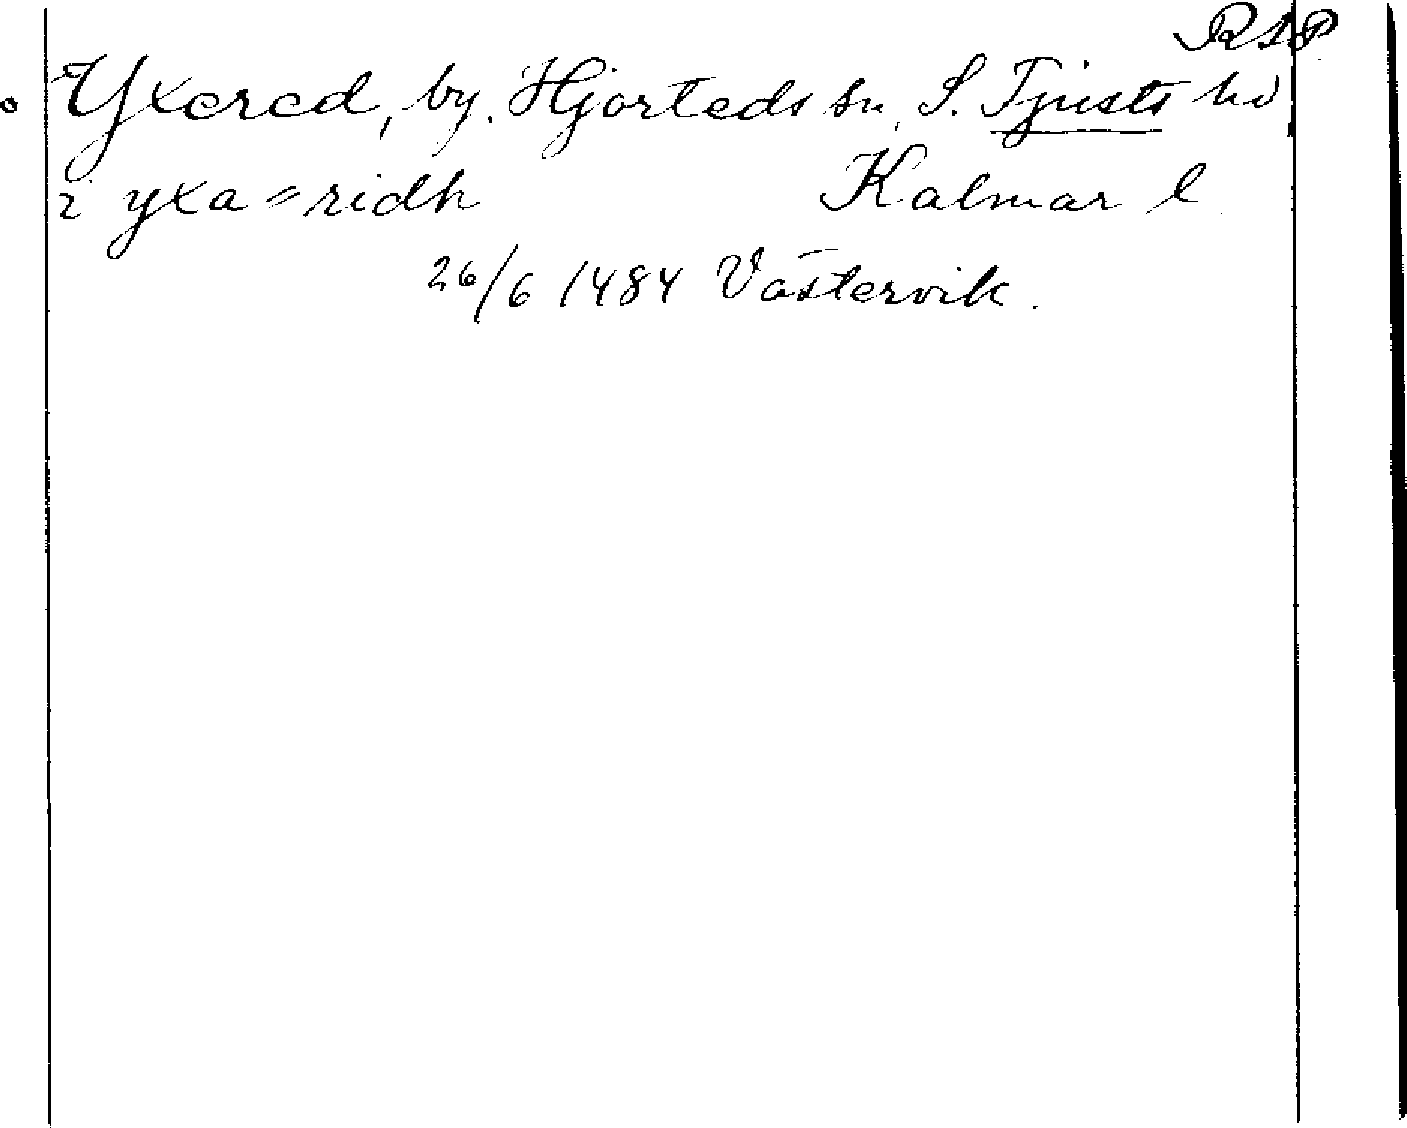 RAP
Yxered, by. Hjorteds sn, S. Tjusts hd
i yxa=ridh Kalmar l
26/6 1484 Västervik.